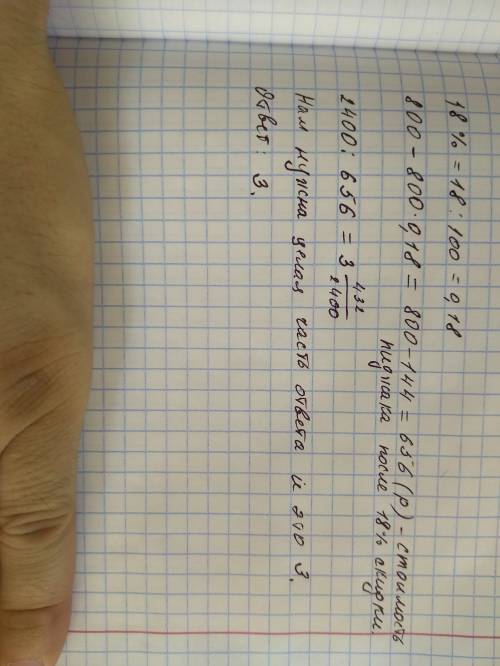 18% = 18 : 100 = 0,18
800 - 800·0,18 = 800-144 = 656 (р) - стоимость
пиджака после 18% скидки.
2400 : 656 = 3 432/2400
Нам нужна целая часть ответа и это 3.
Ответ: 3.